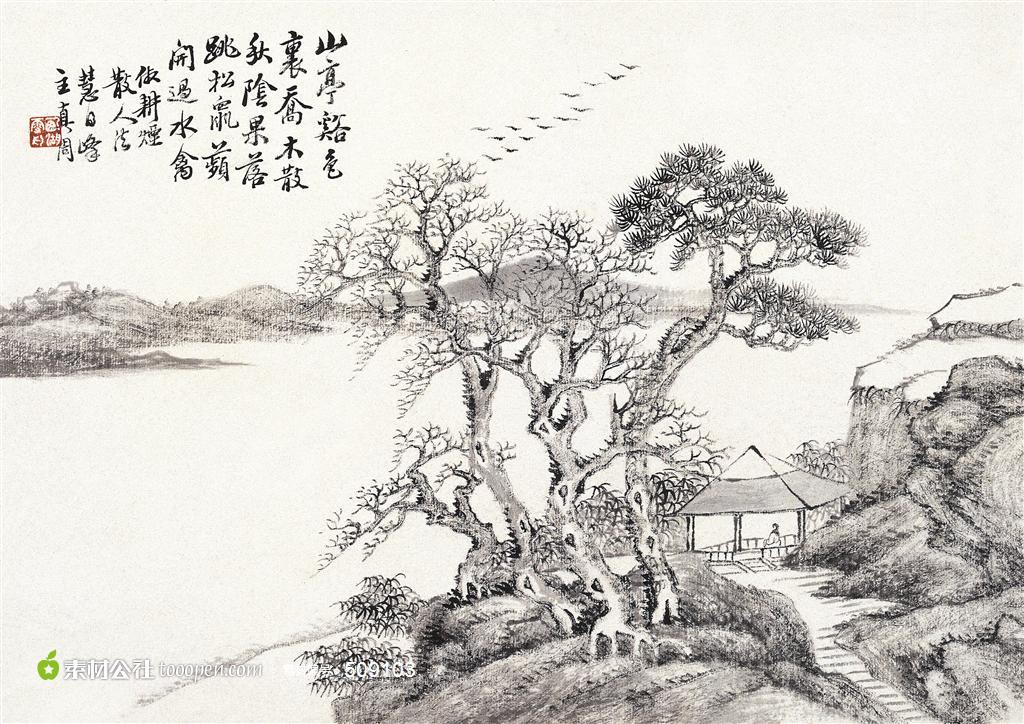 山亭谿色
裏喬木散
秋陰果落
跳松鼠蘋
開過水禽
倣耕煙
散人法
慧日峰
主真
素材公社 tooopen.com
509103